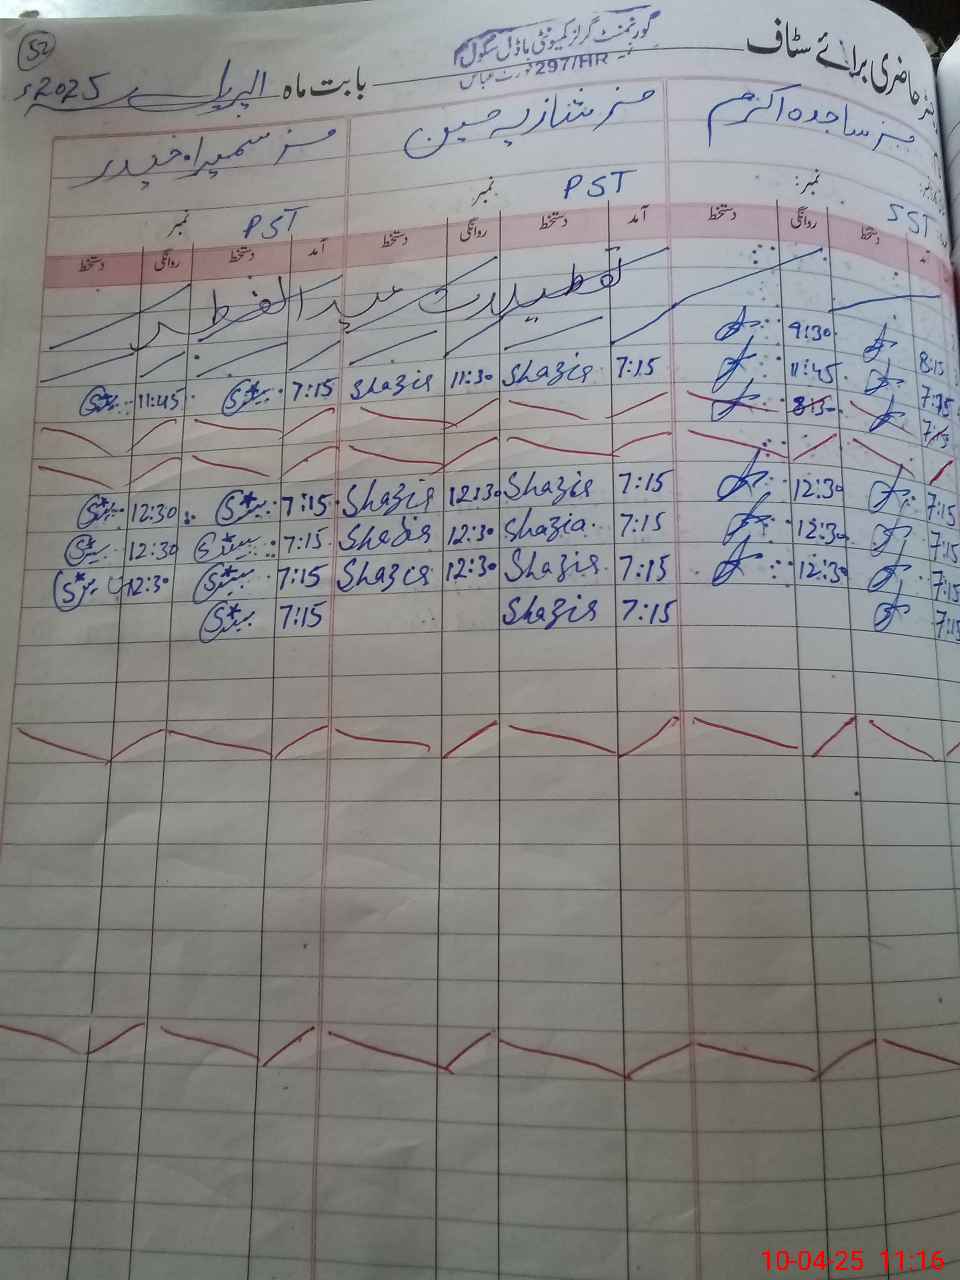 حاضری برائے سٹاف
گورنمنٹ گرلز کمیونٹی ماڈل سکول
297/HR
بابت ماہ اپریل 2025ء
52
مسز ساجدہ اکرم
مسز شازیہ حسین
مسز سمیرا حیدر
نمبر: SST
نمبر PST
نمبر PST
آمد دستخط روانگی دستخط آمد دستخط روانگی دستخط آمد دستخط روانگی دستخط
تعطیلات عید الفطر
8:15 9:30
7:15 11:45 7:15 Shazia 11:30 Shazia 7:15 11:45
7:15 8:15
7:15 12:30 7:15 Shazia 12:30 Shazia 7:15 12:30
7:15 12:30 7:15 Shazia 12:30 Shazia 7:15 12:30
7:15 12:30 7:15 Shazia 12:30 Shazia 7:15 12:30
7:15 7:15 Shazia 7:15
10-04-25 11:16